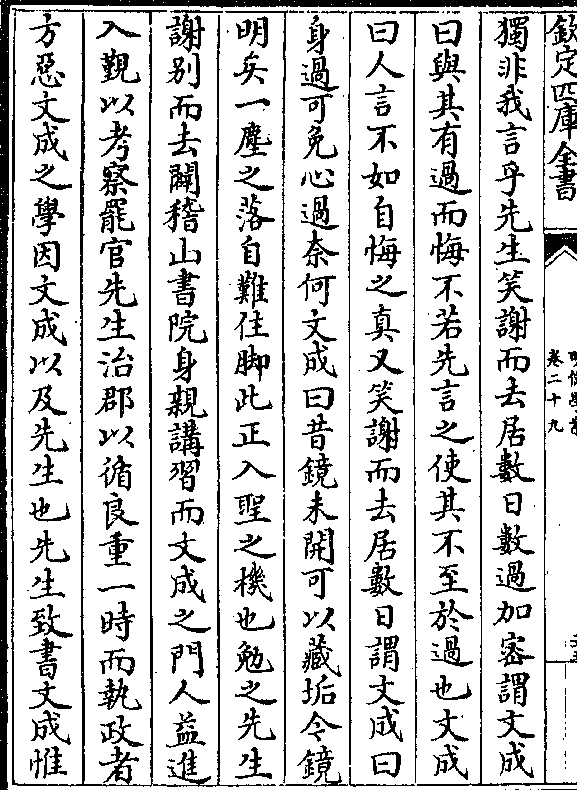 欽定四庫全書
明儒學案
卷二十九
獨非我言乎先生笑謝而去居數日數過加密謂文成
曰與其有過而悔不若先言之使其不至於過也文成
曰人言不如自悔之真又笑謝而去居數日謂文成曰
身過可免心過奈何文成曰昔鏡未開可以藏垢今鏡
明矣一塵之落自難住脚此正入聖之機也勉之先生
謝别而去闢稽山書院身親講習而文成之門人益進
入覲以考察罷官先生治郡以循良重一時而執政者
方惡文成之學因文成以及先生也先生致書文成惟